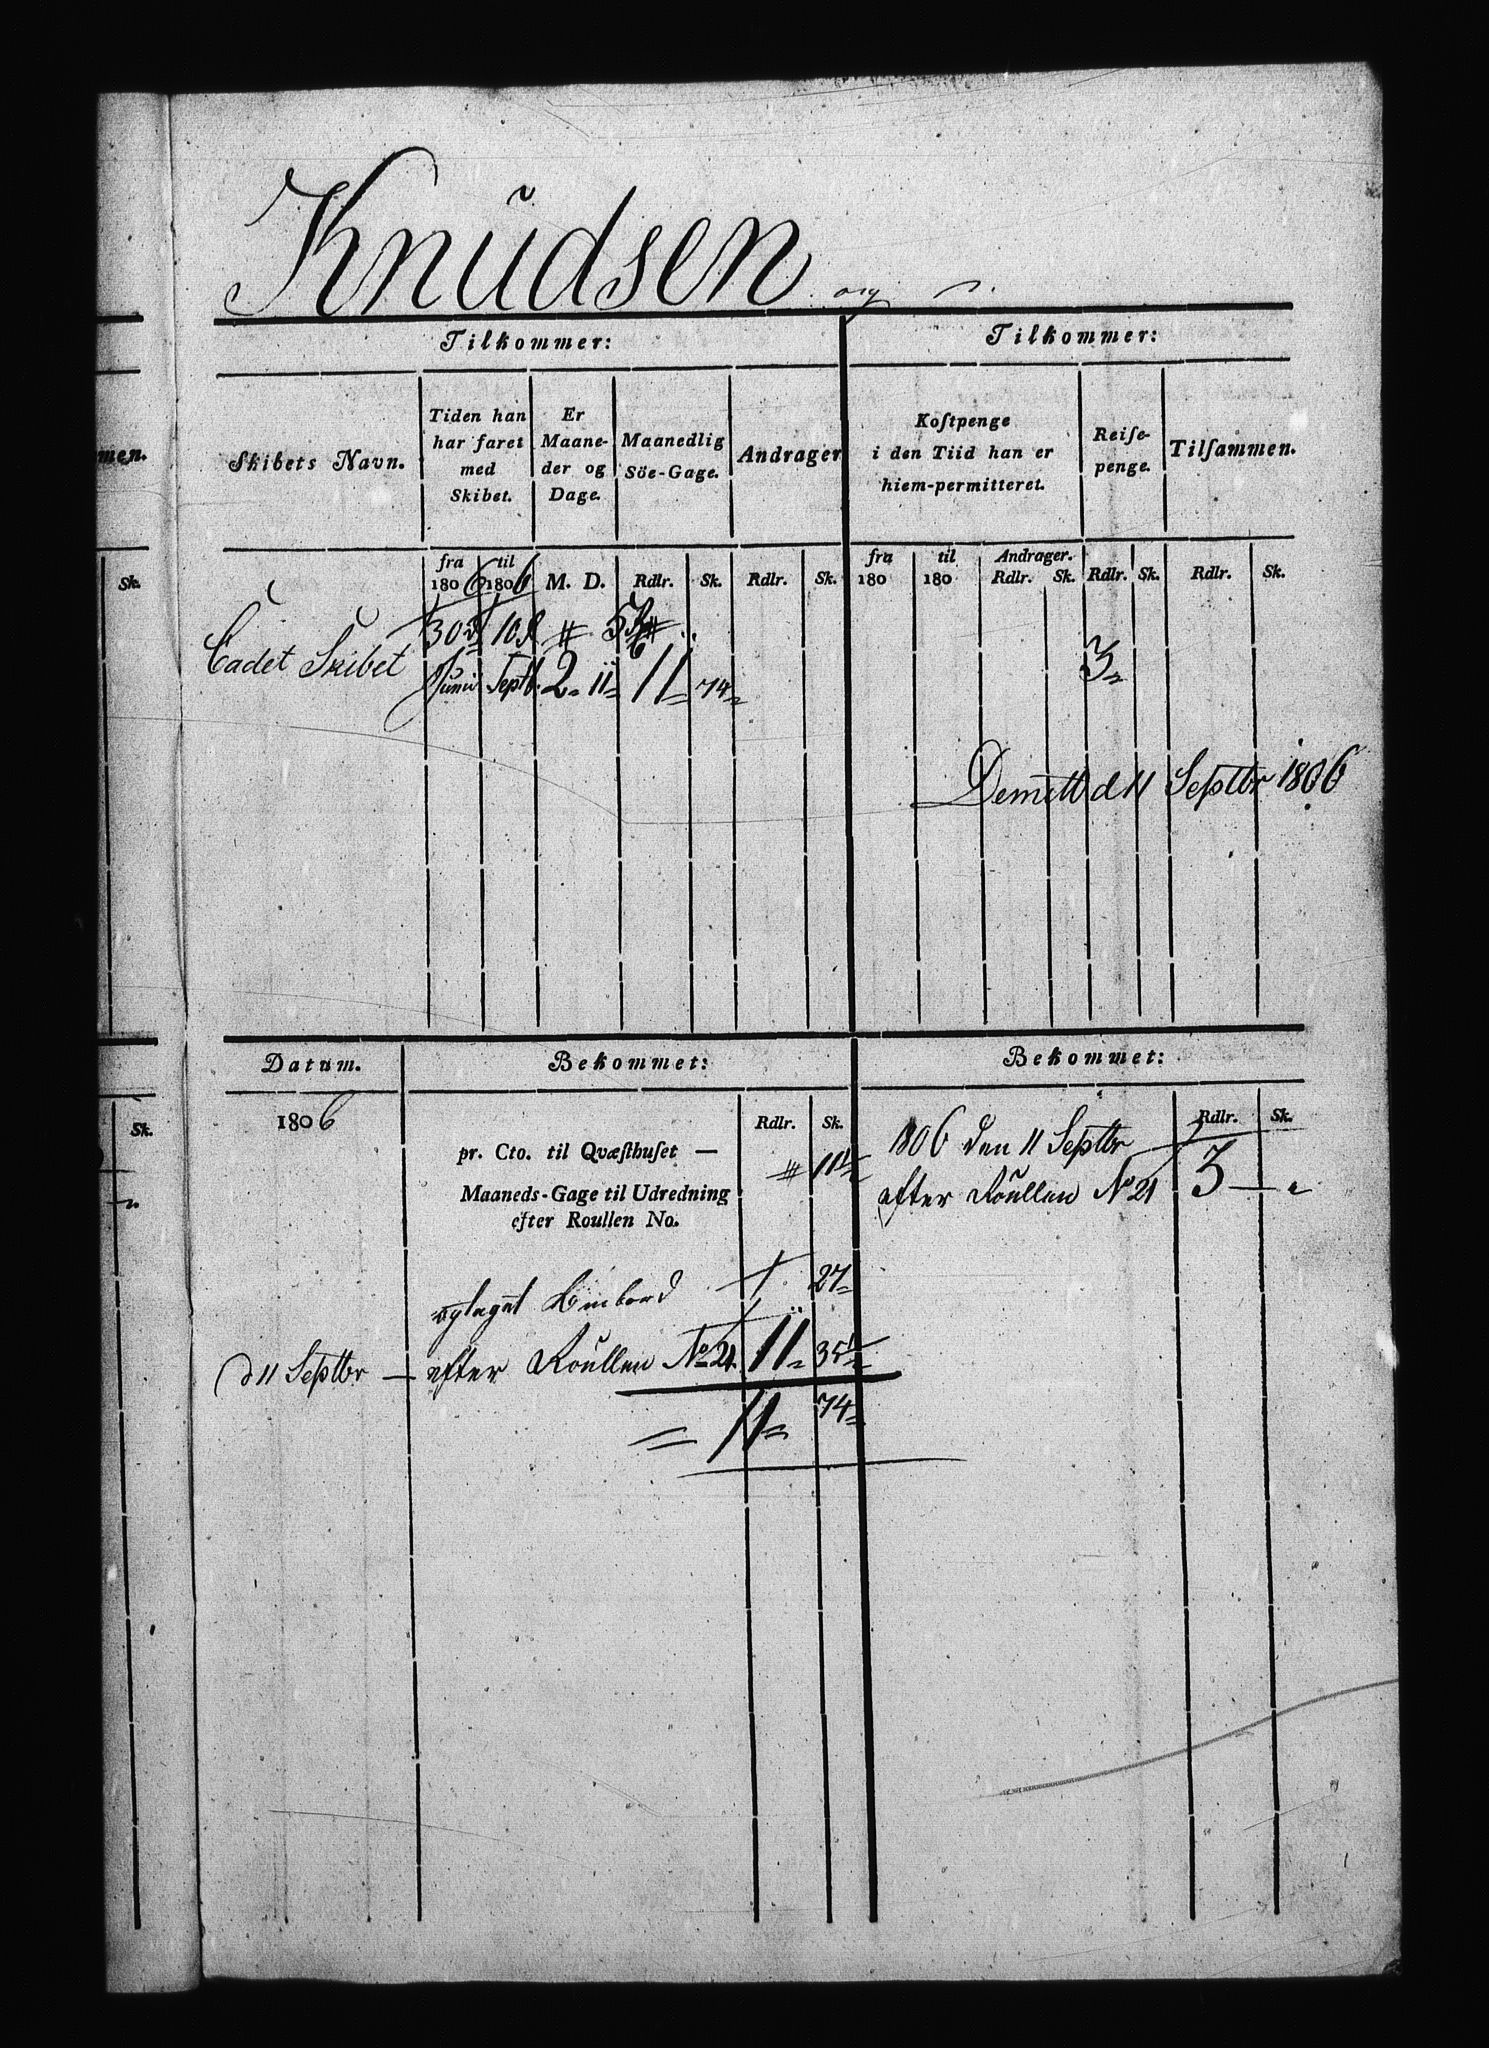 Knudsen
Tilkommer:
Tilkommer:
Skibets Navn.
Tiden han
har faret
med
Skibet.
Er
Maane-
der og
Dage.
Maanedlig
Söe-Gage.
Andrager
Koſtpenge
i den Tiid han er
hiem-permitteret.
Reiſe-
penge.
Tilſammen.
men.
fra
1806
til
1806
M. D.
Rdlr.
Sk.
Rdlr.
Sk.
fra
180
til
180
Andrager.
Rdlr.
Sk.
Rdlr.
Sk.
Rdlr.
Sk.
Sk.
30
10
Cadet Skibet
Junii
Septb.
2
11
11
74
3
d 11 Septbr 1806
Datum.
Bekommet:
Bekommet:
1806
Rdlr.
Sk.
Rdlr.
Sk.
Sk.
pr. Cto. til Qvæſthuſet —
Maaneds-Gage til Udredning
efter Roullen No.
1806 den 11 Septbr
efter Roullen No 21 3
27
d 11 Septbr — efter Roullen No 21. 11 35
11 74